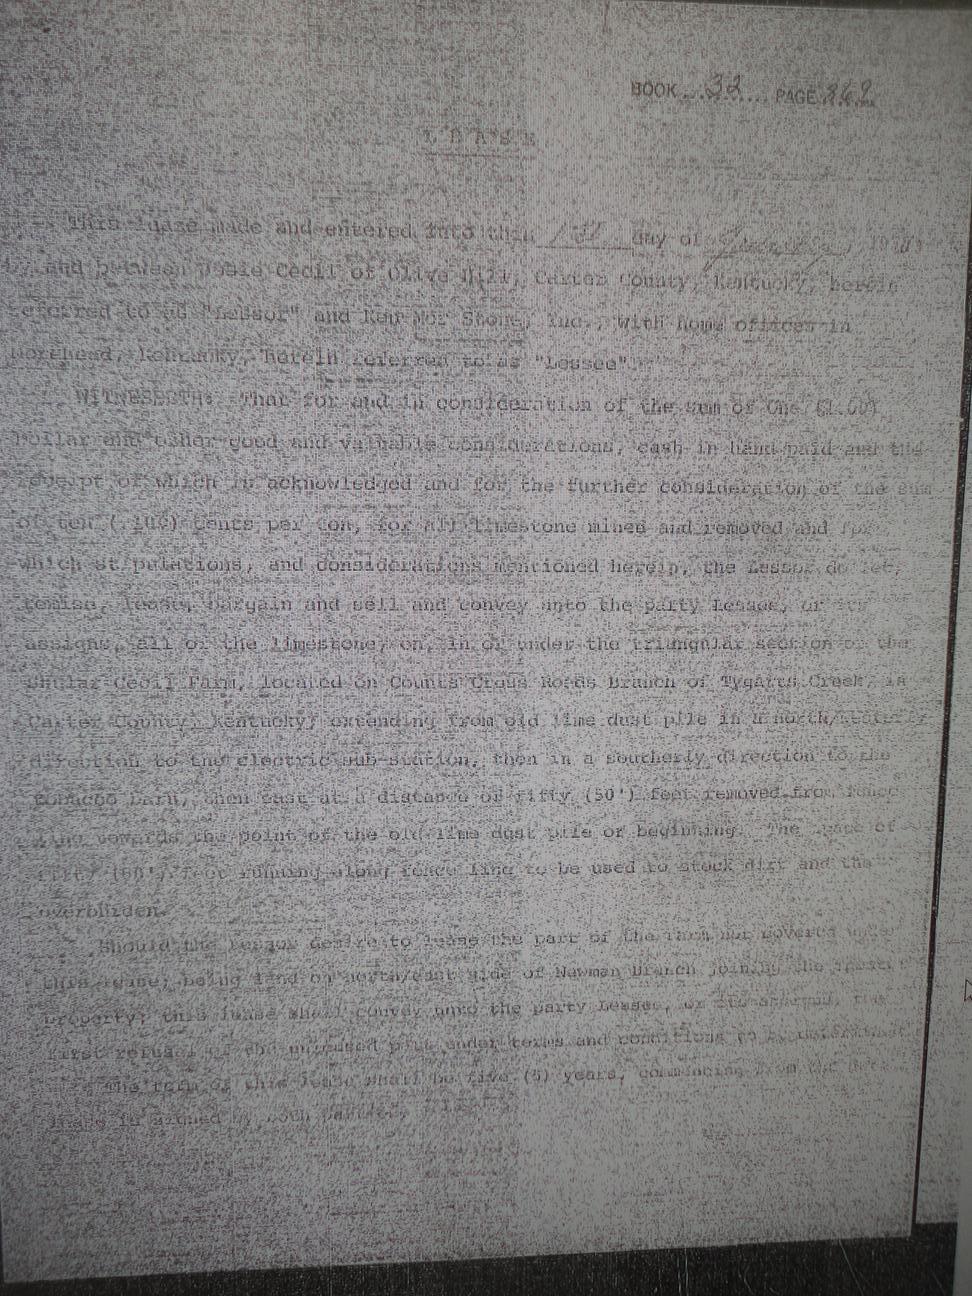 BOOK 32 PAGE
LEASE
This lease made and entered into this day of
by and between Cecil of Olive Hill, Carter County, Kentucky, herein
referred to as "Lessor" and Ken-Mor Stone, Inc., with home offices in
Morehead, Kentucky, herein referred to as "Lessee".
WITNESSETH: That for and in consideration of the sum of One ($1.00)
Dollar and other good and valuable considerations, cash in hand paid and the
receipt of which is acknowledged and for the further consideration of the sum
of ten (.10¢) cents per ton, for all limestone mined and removed and for
which stipulations, and considerations mentioned herein, the Lessor do let,
remise, lease, bargain and sell and convey unto the party Lessee, or its
assigns, all of the limestone, on, in or under the triangular section of the
Cecil Farm, located on Counts Cross Roads Branch of Tygarts Creek, in
Carter County, Kentucky, extending from old lime dust pile in a north/
direction to the electric sub-station, then in a southerly direction to the
tobacco barn, then east at a distance of fifty (50') feet removed from fence
line towards the point of the old lime dust pile or beginning. The space of
fifty (50') feet running along fence line to be used to stock dirt and the
overburden.
Should the Lessor desire to lease the part of the farm not covered under
this lease, being land on north/east side of Newman Branch joining the
property; this lease shall convey unto the party Lessee, or its assigns, the
first refusal of the unleased part under terms and conditions to be
The term of this lease shall be five (5) years, commencing from the date
lease is signed by both parties.